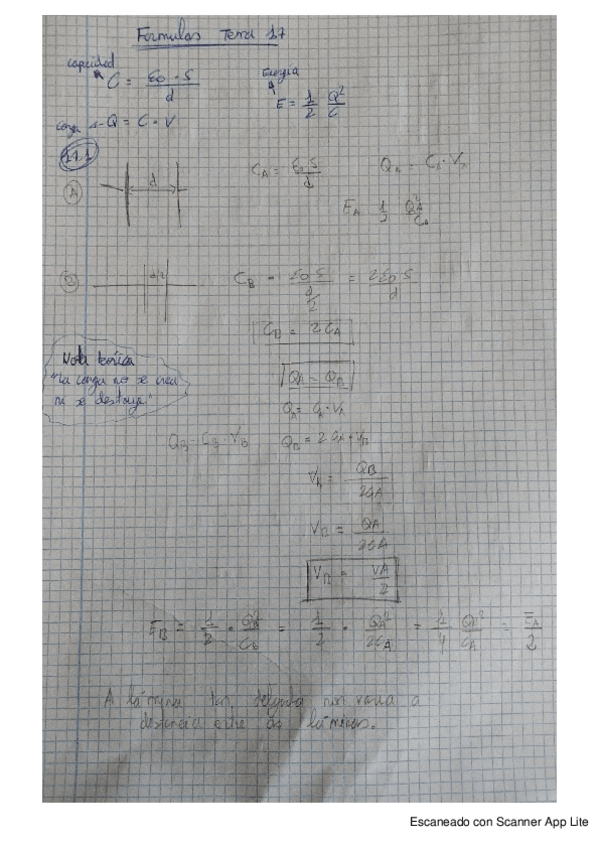 Formulas Tema 17
capacidad C = ε₀·S / d
Energía E = 1/2 Q²/C
carga Q = C·V
A d C_A = ε₀·S / d Q_A = C_A·V_A
E_A 1/2 Q_A²/C_A
d/2 C_B = ε₀·S / (d/2) = 2ε₀·S / d
C_B = 2C_A
Nota teórica
"La carga no se crea
ni se destruye"
Q_A = Q_B
Q_A = C_A·V_A
Q_B = C_B·V_B Q_B = 2C_A·V_B
V_B = Q_B / 2C_A
V_B = Q_A / 2C_A
V_B = V_A / 2
E_B = 1/2 · Q_B²/C_B = 1/2 · Q_A²/2C_A = 1/4 Q_A²/C_A = E_A/2
A lámina tan delgada non varia a
distancia entre as láminas.
Escaneado con Scanner App Lite